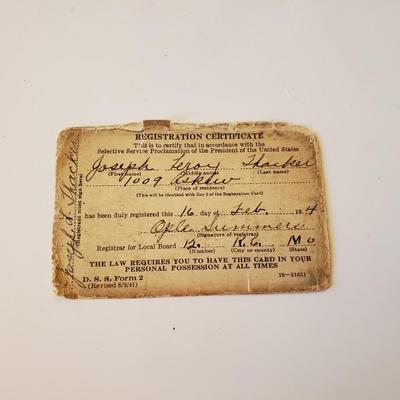 REGISTRATION CERTIFICATE
This is to certify that in accordance with the
Selective Service Proclamation of the President of the United States
Joseph Leroy Thacker
(First name) (Middle name) (Last name)
1009 Askew
(Place of residence)
(This will be identical with line 2 of the Registration Card)
has been duly registered this 16 day of Feb. 194
Ople Summers
(Signature of registrar)
Registrar for Local Board 12 K.C. Mo
(Number) (City or county) (State)
THE LAW REQUIRES YOU TO HAVE THIS CARD IN YOUR
PERSONAL POSSESSION AT ALL TIMES
D. S. S. Form 2
(Revised 6/9/41)
16-21631
Joseph L Thacker
(Registrant must sign here)